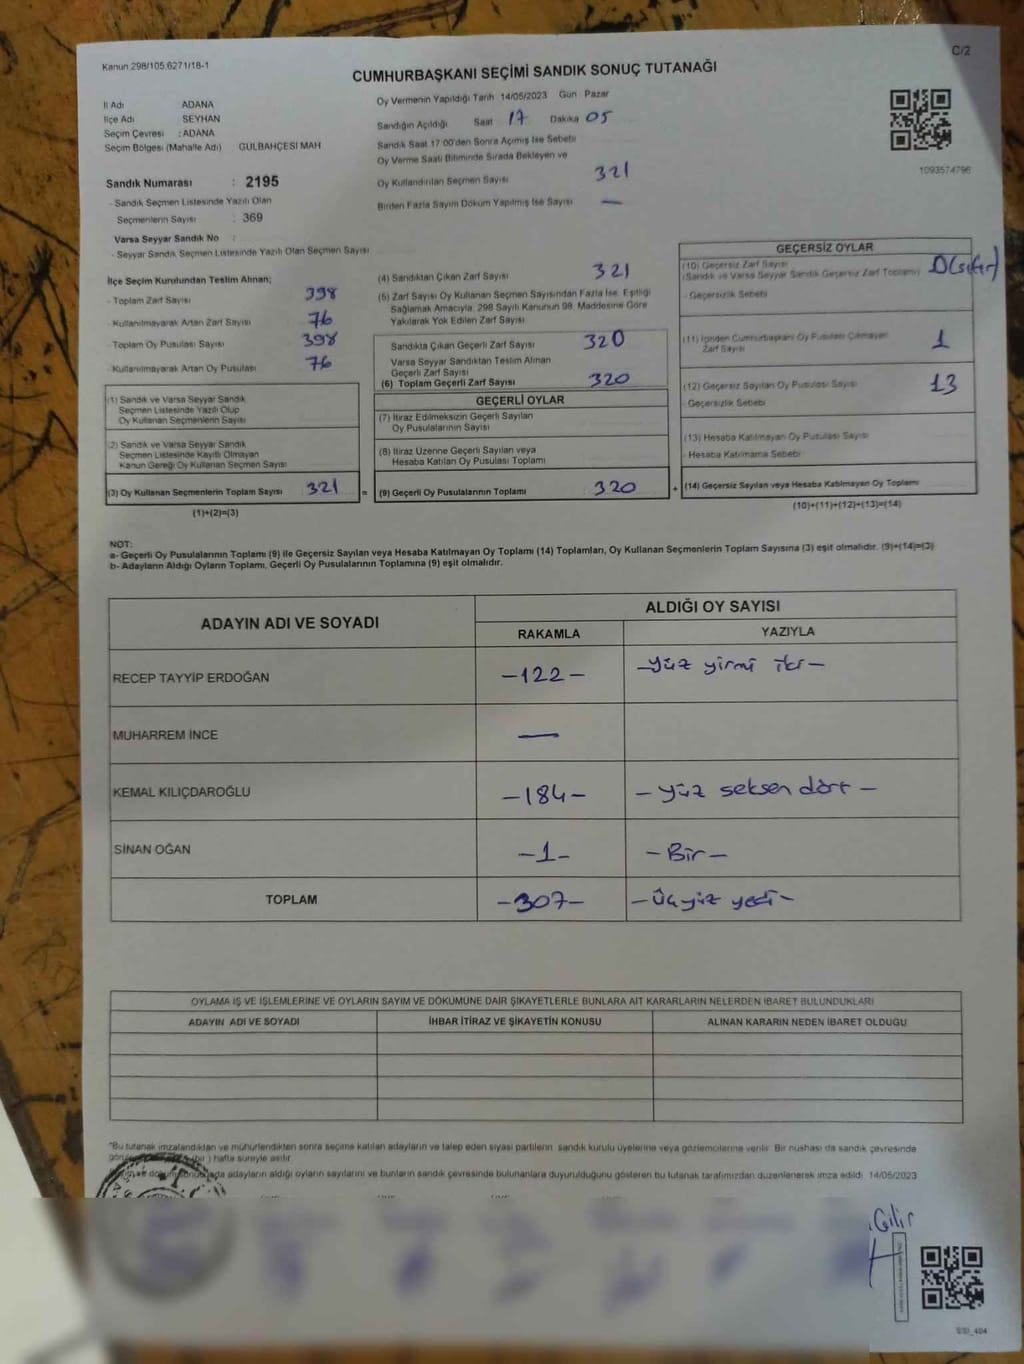 Kanun 298/105.6271/18-1
C/2
CUMHURBAŞKANI SEÇİMİ SANDIK SONUÇ TUTANAĞI
İl Adı ADANA
İlçe Adı SEYHAN
Seçim Çevresi : ADANA
Seçim Bölgesi (Mahalle Adı) GÜLBAHÇESİ MAH
Sandık Numarası : 2195
- Sandık Seçmen Listesinde Yazılı Olan
Seçmenlerin Sayısı : 369
Varsa Seyyar Sandık No :
- Seyyar Sandık Seçmen Listesinde Yazılı Olan Seçmen Sayısı
Oy Vermenin Yapıldığı Tarih 14/05/2023 Gün Pazar
Sandığın Açıldığı Saat 17 Dakika 05
Sandık Saat 17:00'den Sonra Açılmış İse Sebebi
Oy Verme Saati Bitiminde Sırada Bekleyen ve
Oy Kullandırılan Seçmen Sayısı 321
Birden Fazla Sayım Döküm Yapılmış İse Sayısı —
1093574796
İlçe Seçim Kurulundan Teslim Alınan;
- Toplam Zarf Sayısı 398
- Kullanılmayarak Artan Zarf Sayısı 76
- Toplam Oy Pusulası Sayısı 398
- Kullanılmayarak Artan Oy Pusulası 76
(1) Sandık ve Varsa Seyyar Sandık
Seçmen Listesinde Yazılı Olup
Oy Kullanan Seçmenlerin Sayısı
(2) Sandık ve Varsa Seyyar Sandık
Seçmen Listesinde Kayıtlı Olmayan
Kanun Gereği Oy Kullanan Seçmen Sayısı
(3) Oy Kullanan Seçmenlerin Toplam Sayısı 321
(1)+(2)=(3)
(4) Sandıktan Çıkan Zarf Sayısı 321
(5) Zarf Sayısı Oy Kullanan Seçmen Sayısından Fazla İse, Eşitliği
Sağlamak Amacıyla, 298 Sayılı Kanunun 98. Maddesine Göre
Yakılarak Yok Edilen Zarf Sayısı
Sandıkta Çıkan Geçerli Zarf Sayısı 320
Varsa Seyyar Sandıktan Teslim Alınan
Geçerli Zarf Sayısı
(6) Toplam Geçerli Zarf Sayısı 320
GEÇERLİ OYLAR
(7) İtiraz Edilmeksizin Geçerli Sayılan
Oy Pusulalarının Sayısı
(8) İtiraz Üzerine Geçerli Sayılan veya
Hesaba Katılan Oy Pusulası Toplamı
= (9) Geçerli Oy Pusulalarının Toplamı 320
GEÇERSİZ OYLAR
(10) Geçersiz Zarf Sayısı
(Sandık ve Varsa Seyyar Sandık Geçersiz Zarf Toplamı) 0(sıfır)
- Geçersizlik Sebebi
(11) İçinden Cumhurbaşkanı Oy Pusulası Çıkmayan
Zarf Sayısı 1
(12) Geçersiz Sayılan Oy Pusulası Sayısı 13
- Geçersizlik Sebebi
(13) Hesaba Katılmayan Oy Pusulası Sayısı
- Hesaba Katılmama Sebebi
+ (14) Geçersiz Sayılan veya Hesaba Katılmayan Oy Toplamı
(10)+(11)+(12)+(13)=(14)
NOT:
a- Geçerli Oy Pusulalarının Toplamı (9) ile Geçersiz Sayılan veya Hesaba Katılmayan Oy Toplamı (14) Toplamları, Oy Kullanan Seçmenlerin Toplam Sayısına (3) eşit olmalıdır. (9)+(14)=(3)
b- Adayların Aldığı Oyların Toplamı, Geçerli Oy Pusulalarının Toplamına (9) eşit olmalıdır.
ADAYIN ADI VE SOYADI ALDIĞI OY SAYISI
RAKAMLA YAZIYLA
RECEP TAYYİP ERDOĞAN -122- -yüz yirmi iki-
MUHARREM İNCE —
KEMAL KILIÇDAROĞLU -184- -yüz seksen dört-
SİNAN OĞAN -1- -Bir-
TOPLAM -307- -Üçyüz yedi-
OYLAMA İŞ VE İŞLEMLERİNE VE OYLARIN SAYIM VE DÖKÜMÜNE DAİR ŞİKAYETLERLE BUNLARA AİT KARARLARIN NELERDEN İBARET BULUNDUKLARI
ADAYIN ADI VE SOYADI İHBAR İTİRAZ VE ŞİKAYETİN KONUSU ALINAN KARARIN NEDEN İBARET OLDUĞU
"Bu tutanak imzalandıktan ve mühürlendikten sonra seçime katılan adayların ve talep eden siyasi partilerin sandık kurulu üyelerine veya gözlemcilerine verilir. Bir nüshası da sandık çevresinde
(bir) hafta süreyle asılır.
adayların aldığı oyların sayılarını ve bunların sandık çevresinde bulunanlara duyurulduğunu gösteren bu tutanak tarafımızdan düzenlenerek imza edildi. 14/05/2023